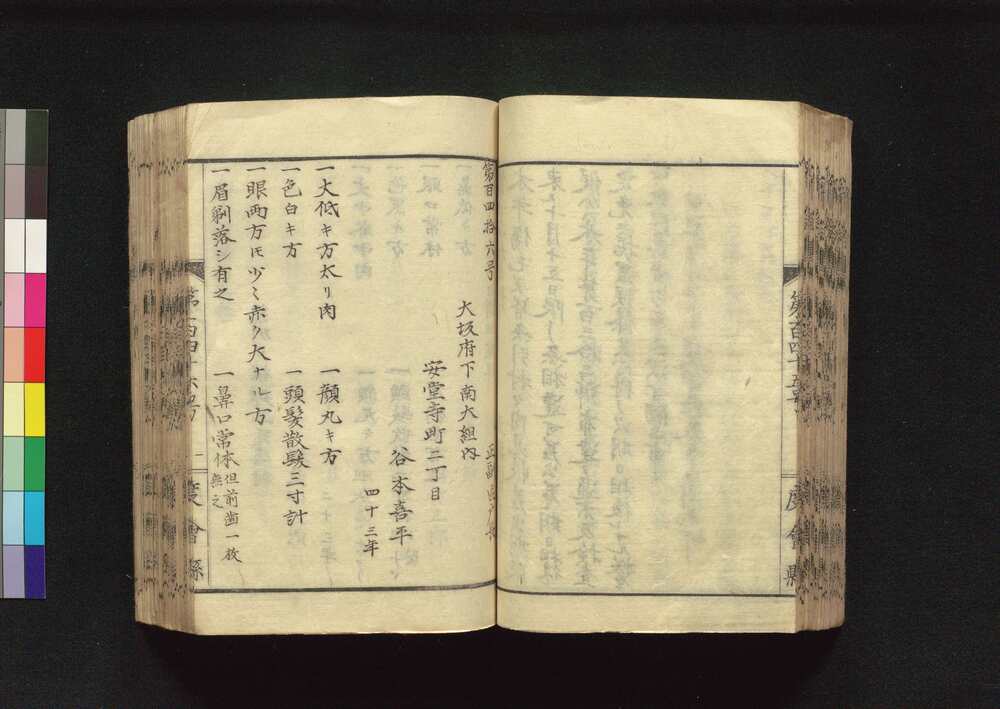 第百四十五号
度會縣
第百四拾六号
正副
大坂府下南大組内
安堂寺町二丁目
谷本喜平
四十三年
一丈低キ方太リ肉
一顔丸キ方
一色白キ方
一頭髪散髪三寸計
一眼両方モ少々赤ク大ナル方
一眉剃落シ有之
一鼻口常体但前歯一枚
無之
第百四十六号
一
度會縣